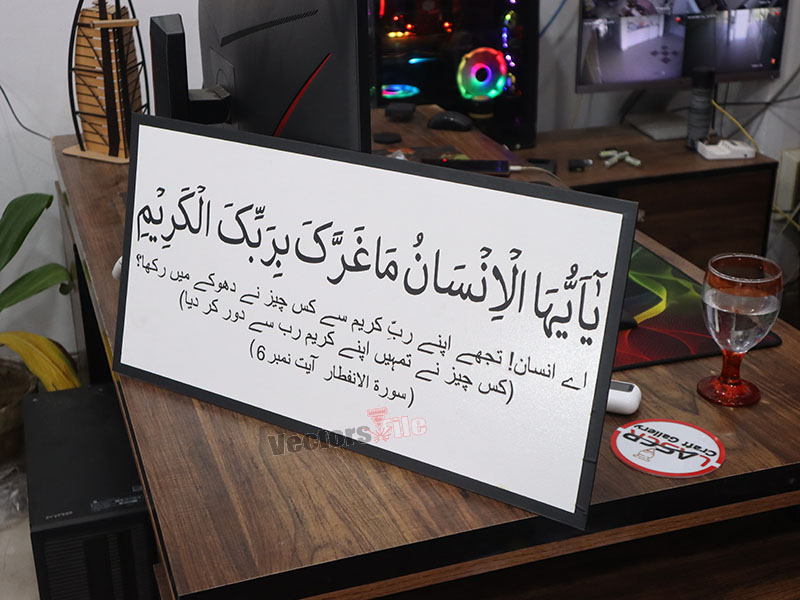 يٰۤاَيُّهَا الْاِنْسَانُ مَا غَرَّكَ بِرَبِّكَ الْكَرِيْمِ
اے انسان! تجھے اپنے ربِّ کریم سے کس چیز نے دھوکے میں رکھا؟
(کس چیز نے تمہیں اپنے کریم رب سے دور کر دیا)
(سورۃ الانفطار آیت نمبر 6)
VectorsFile
LASER
Craft Gallery